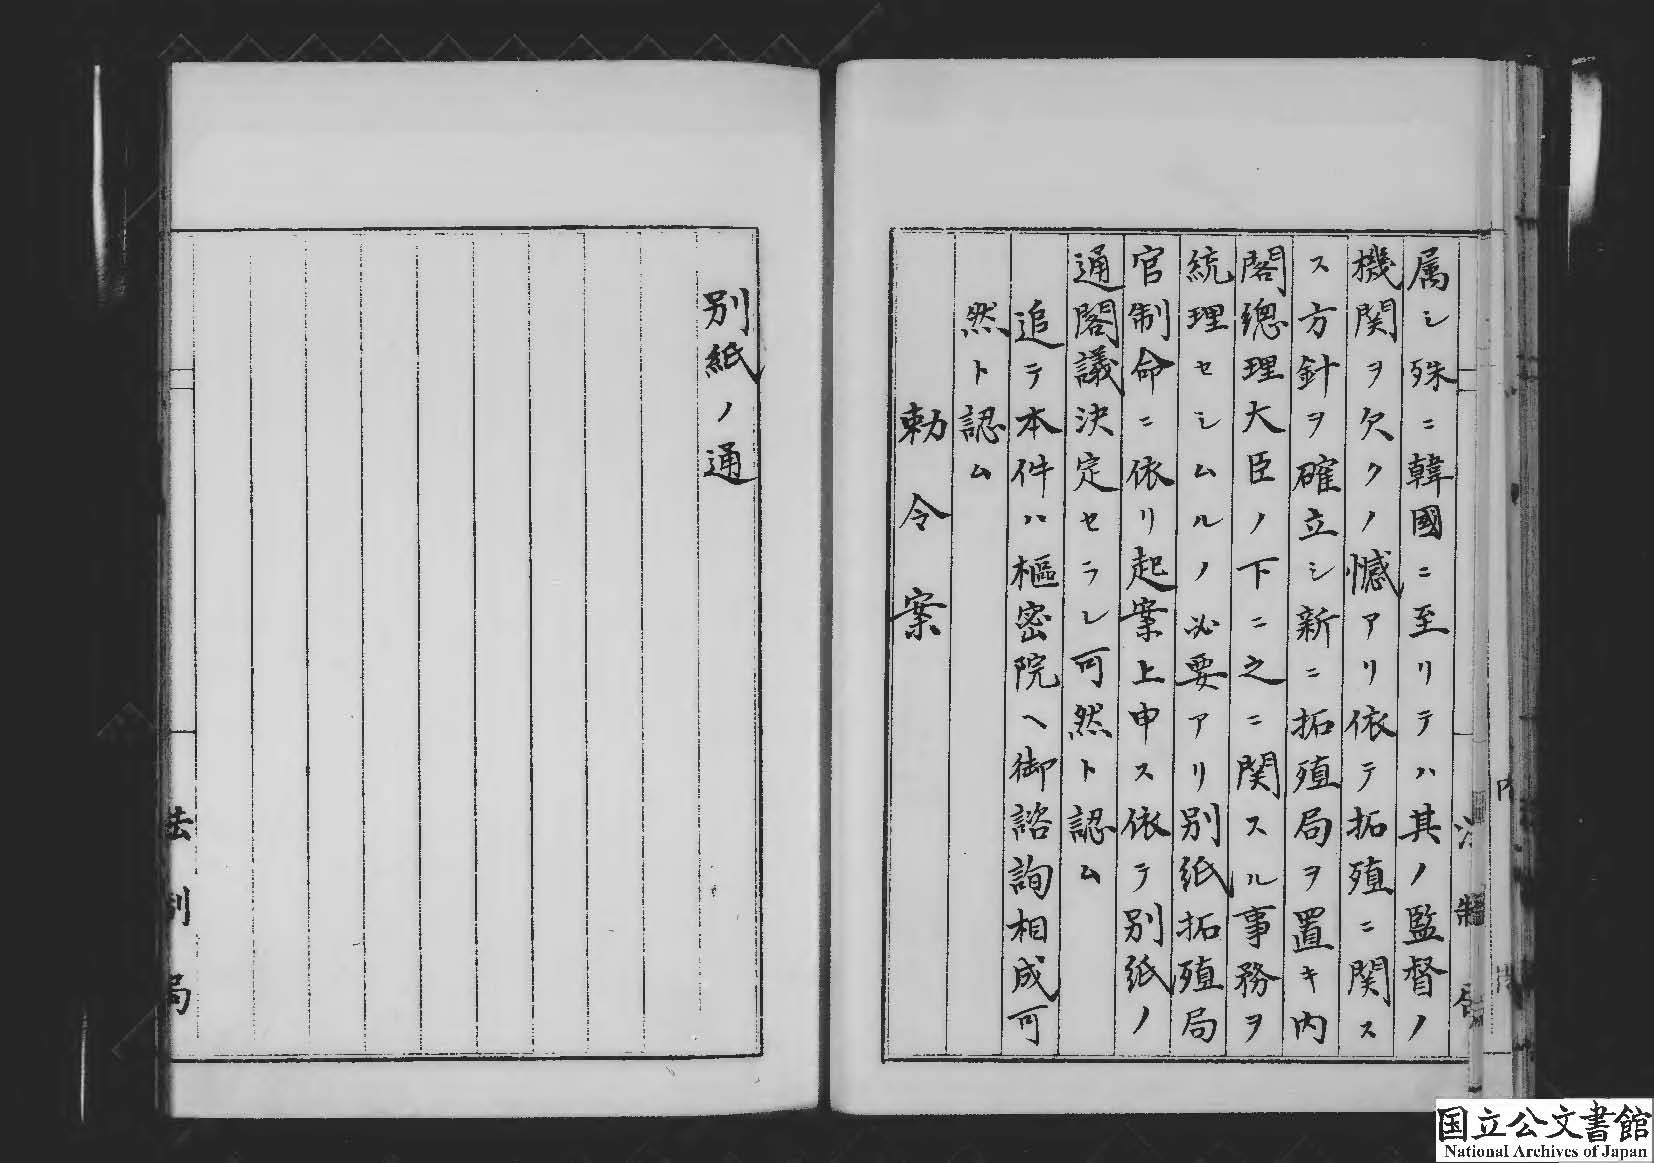 属シ殊ニ韓國ニ至リテハ其ノ監督ノ
機関ヲ欠クノ憾アリ依テ拓殖ニ関ス
ス方針ヲ確立シ新ニ拓殖局ヲ置キ内
閣總理大臣ノ下ニ之ニ関スル事務ヲ
統理セシムルノ必要アリ別紙拓殖局
官制命ニ依リ起案上申ス依テ別紙ノ
通閣議決定セラレ可然ト認ム
追テ本件ハ樞密院ヘ御諮詢相成可
然ト認ム
勅令案
別紙ノ通
法制局
国立公文書館
National Archives of Japan